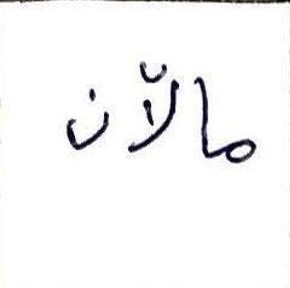 مالآن